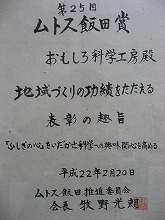 第25回
ムトス飯田賞
おもしろ科学工房殿
地域づくりの功績をたたえる
表彰の趣旨
「ふしぎの心」をいだかせ科学への興味関心を高める
平成22年2月20日
ムトス飯田推進委員会
会長 牧野光朗